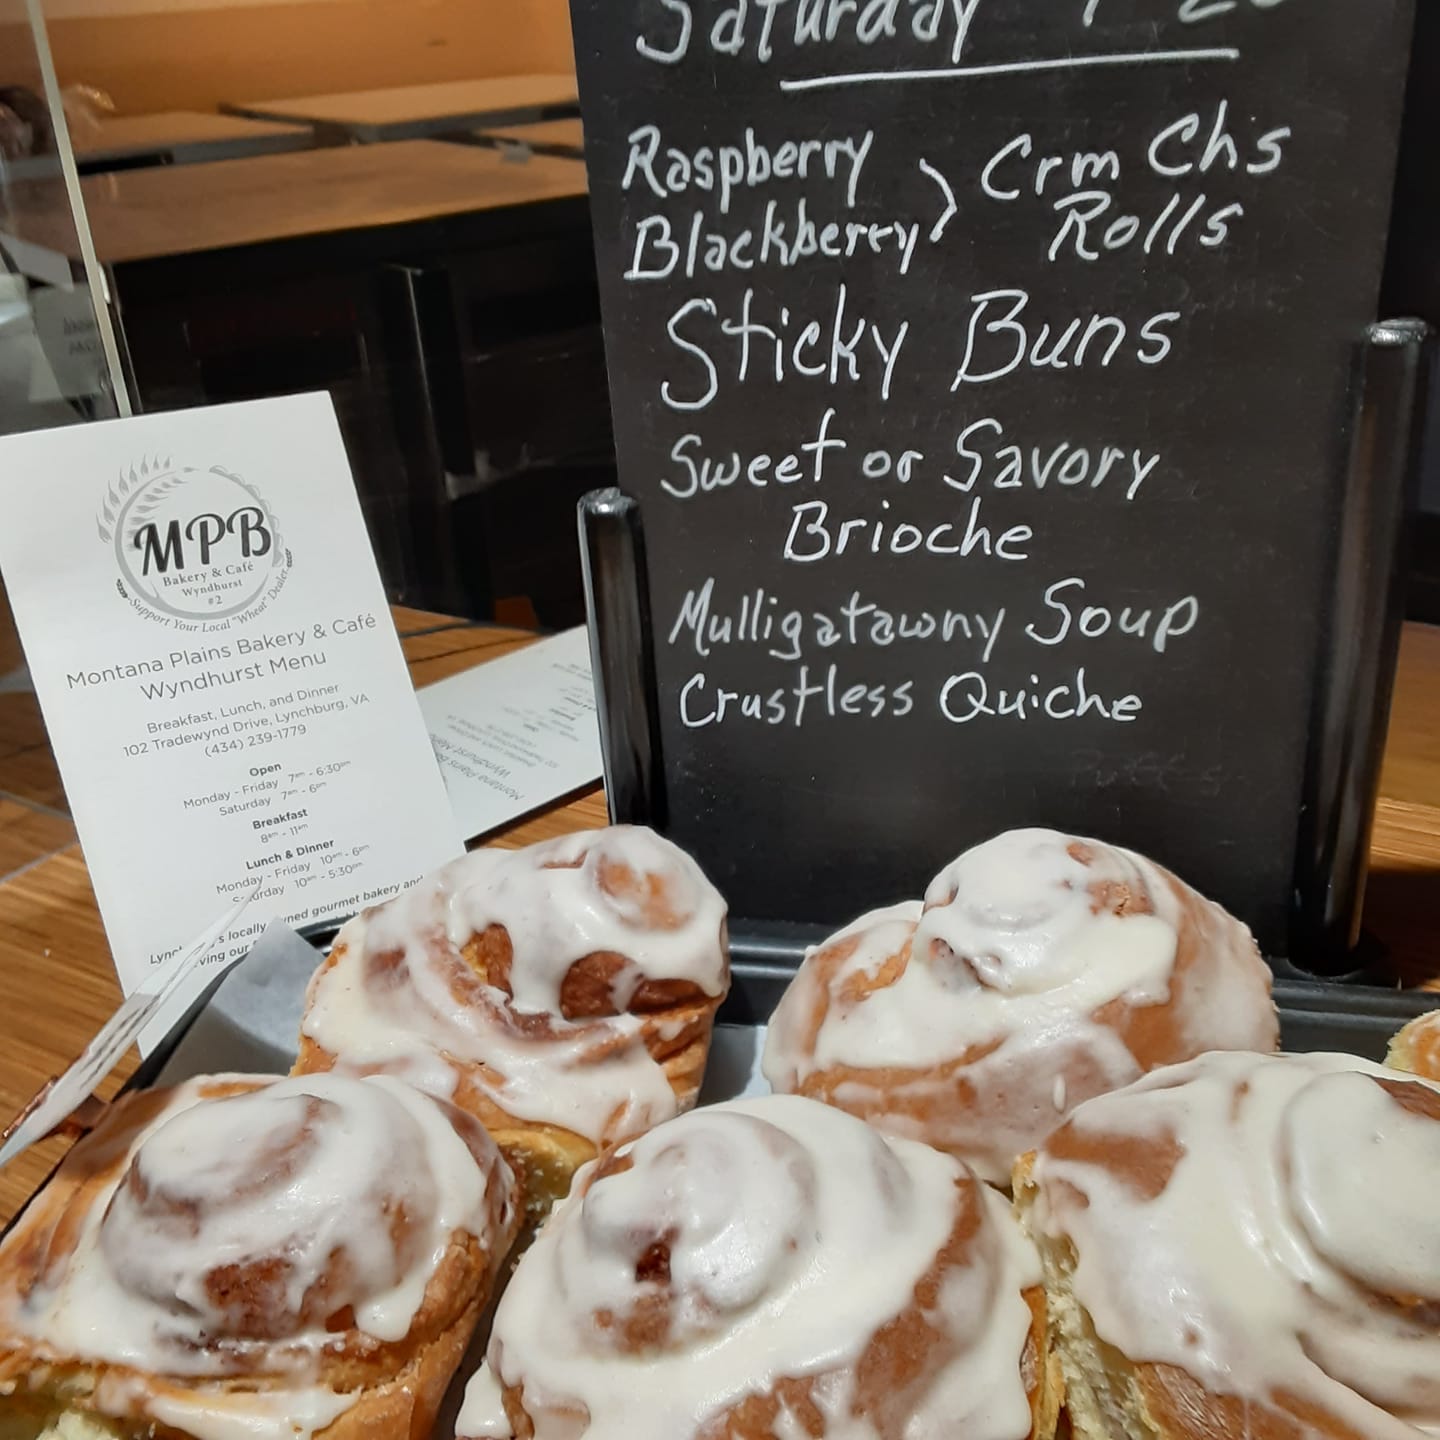 Saturday
Raspberry
Blackberry
Crm Chs
Rolls
Sticky Buns
Sweet or Savory
Brioche
Mulligatawny Soup
Crustless Quiche
MPB
Bakery & Café
Wyndhurst
#2
Support Your Local "Wheat" Dealer
Montana Plains Bakery & Café
Wyndhurst Menu
Breakfast, Lunch, and Dinner
102 Tradewynd Drive, Lynchburg, VA
(434) 239-1779
Open
Monday - Friday 7am - 6:30pm
Saturday 7am - 6pm
Breakfast
8am - 11am
Lunch & Dinner
Monday - Friday 10am - 6pm
Saturday 10am - 5:30pm
locally owned gourmet bakery and
our